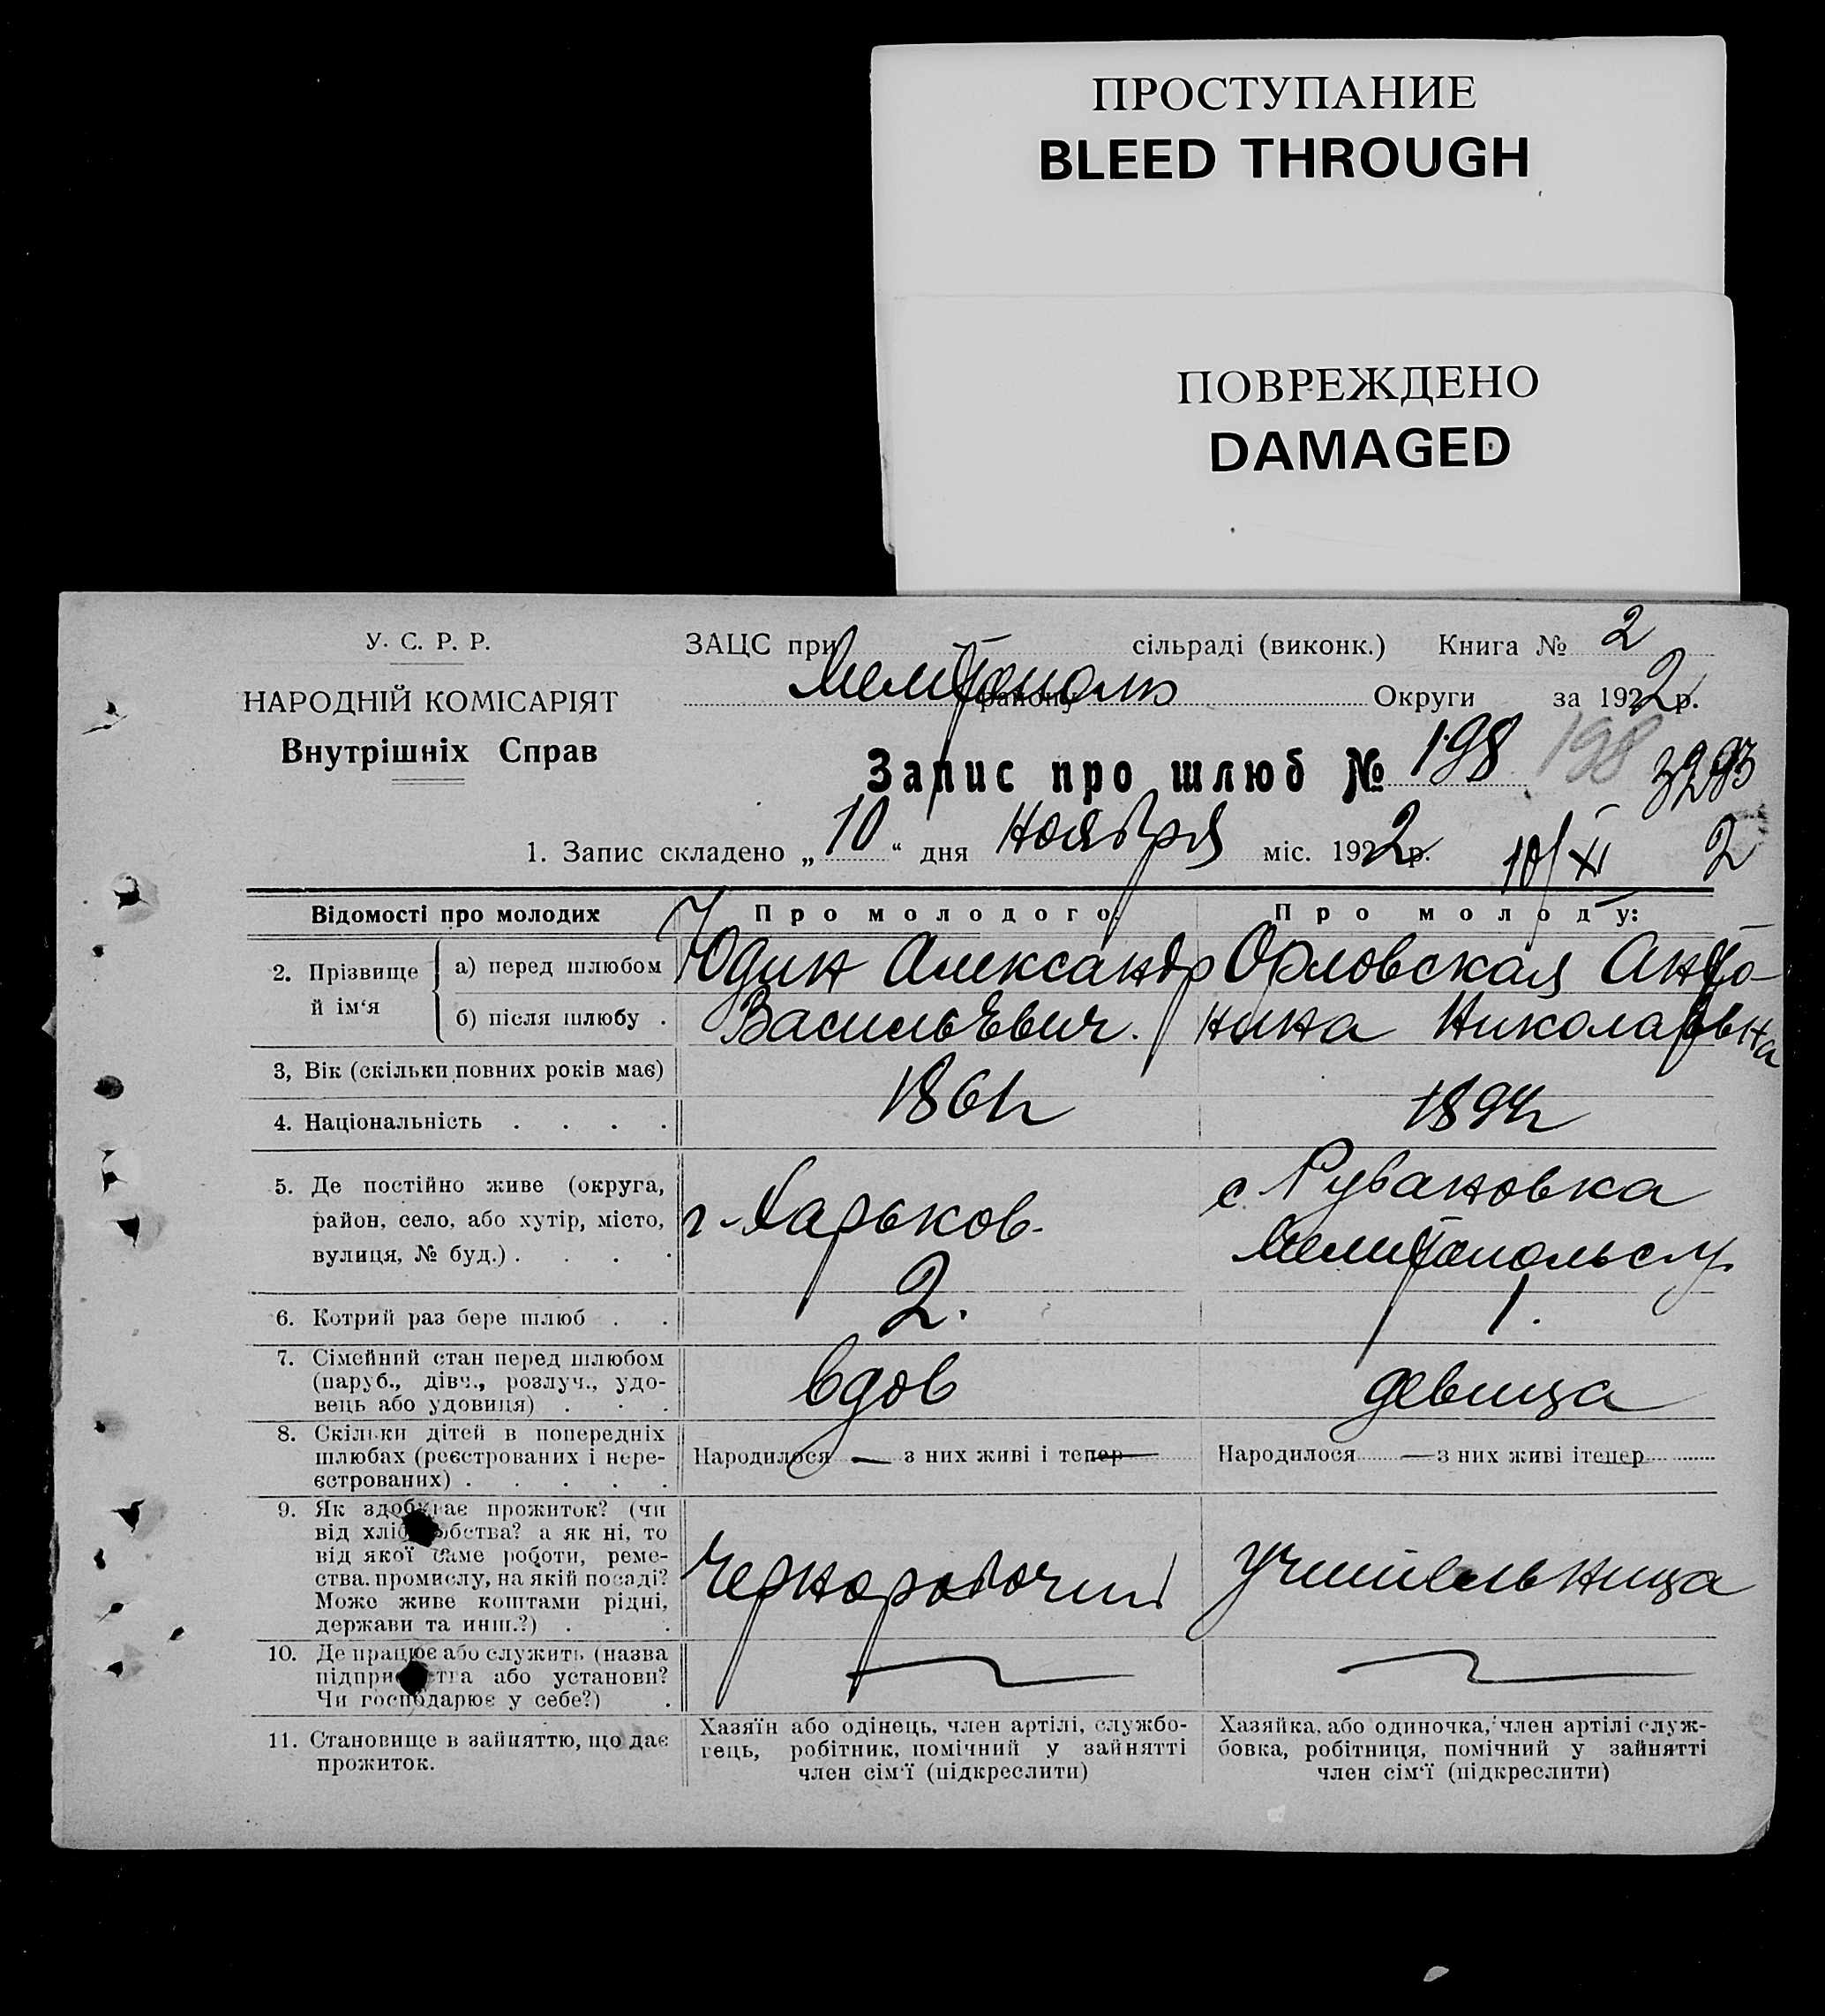 ПРОСТУПАНИЕ
BLEED THROUGH
ПОВРЕЖДЕНО
DAMAGED
У. С. Р. Р.
НАРОДНІЙ КОМІСАРІЯТ
Внутрішніх Справ
ЗАЦС при сільраді (виконк.) Книга № 2
Мелитополь району Округи за 1922 р.
Запис про шлюб № 198 198 3293
1. Запис складено „10“ дня Ноября міс. 1922 р. 10/XI 2
Відомості про молодих Про молодого: Про молоду:
2. Прізвище й ім‘я
а) перед шлюбом Юдин Александр Орловская Анто-
б) після шлюбу . Васильевич. нина Николаевна
3, Вік (скільки повних років має)
1861г 1894г
4. Національність . . . .
5. Де постійно живе (округа,
район, село, або хутір, місто,
вулиця, № буд.) . . . .
г. Харьков. с. Рубановка
Мелитопольск у.
6. Котрий раз бере шлюб . . 2. 1.
7. Сімейний стан перед шлюбом
(паруб., дівч., розлуч., удо-
вець або удовиця) . . .
вдов девица
8. Скільки дітей в попередніх
шлюбах (реєстрованих і нере-
єстрованих) . . . . .
Народилося — з них живі і тепер — Народилося — з них живі ітепер
9. Як здобуває прожиток? (чи
від хліборобства? а як ні, то
від якої саме роботи, реме-
ства. промислу, на якій посаді?
Може живе коштами рідні,
держави та инш.?) . .
Чернорабочий учительница
10. Де працює або служить (назва
підприємства або установи?
Чи господарює у себе?) .
11. Становище в зайняттю, що дає
прожиток.
Хазяїн або одінець, член артілі, службо-
вець, робітник, помічний у зайнятті
член сім‘ї (підкреслити)
Хазяйка, або одиночка, член артілі служ-
бовка, робітниця, помічний у зайнятті
член сім‘ї (підкреслити)